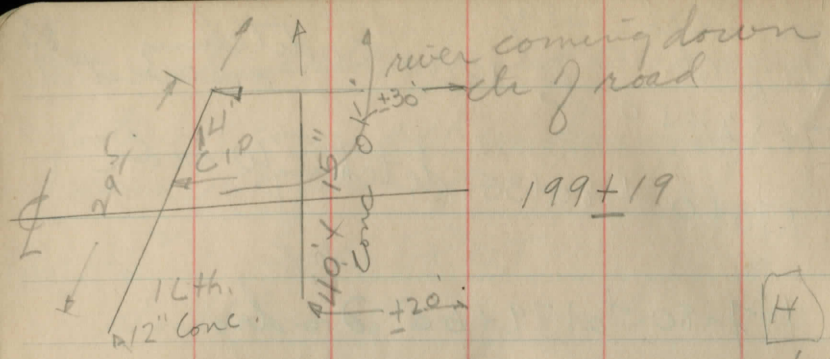 river coming down
ctr of road
±30'
14'
CIP
29.5'
40' x 15"
Conc
OK
199+19
1 Lth.
12" Conc.
±20'
H